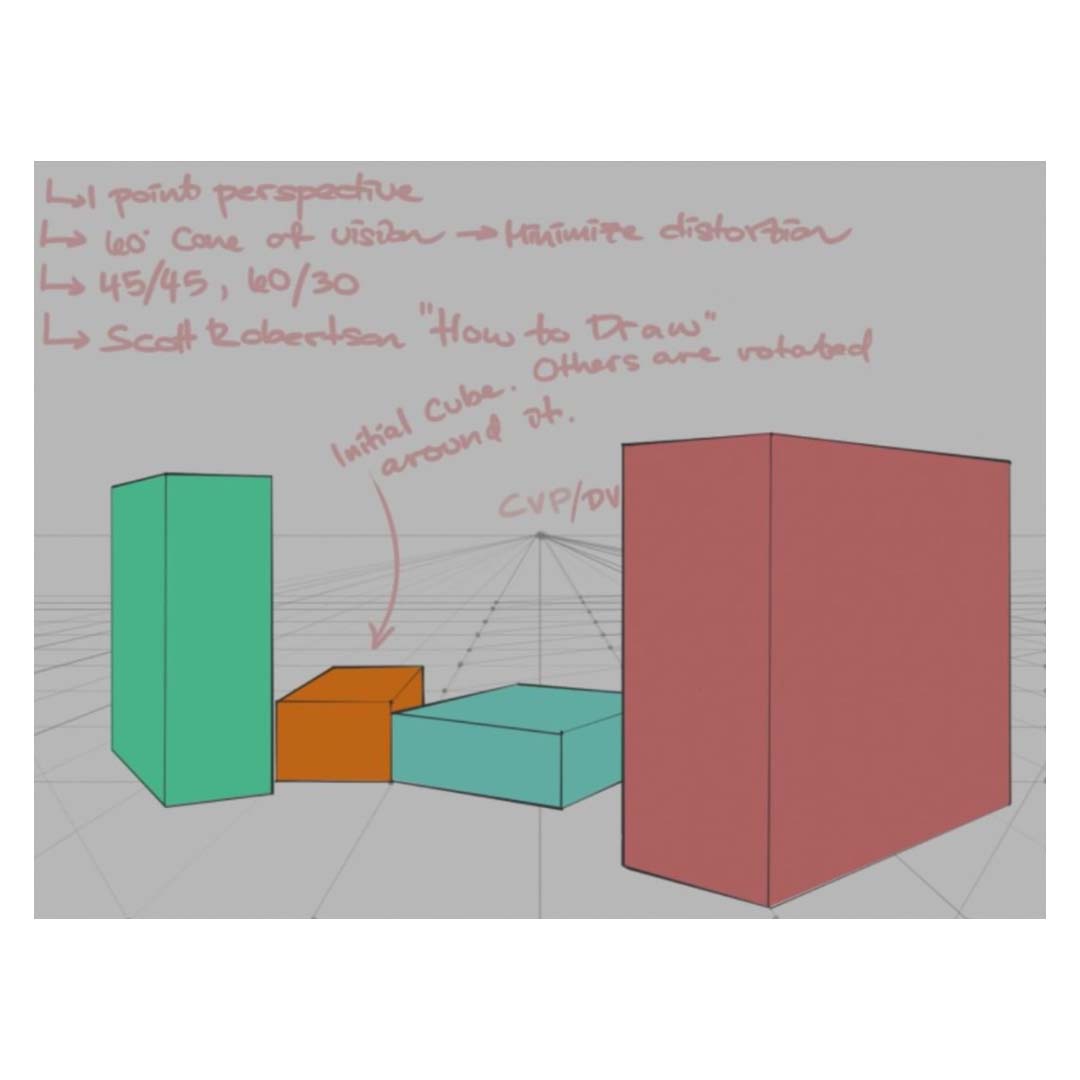 ↳ 1 point perspective
↳ 60° Cone of vision → Minimize distortion
↳ 45/45, 60/30
↳ Scott Robertson "How to Draw"
Initial Cube. Others are rotated
around it.
CVP/DV